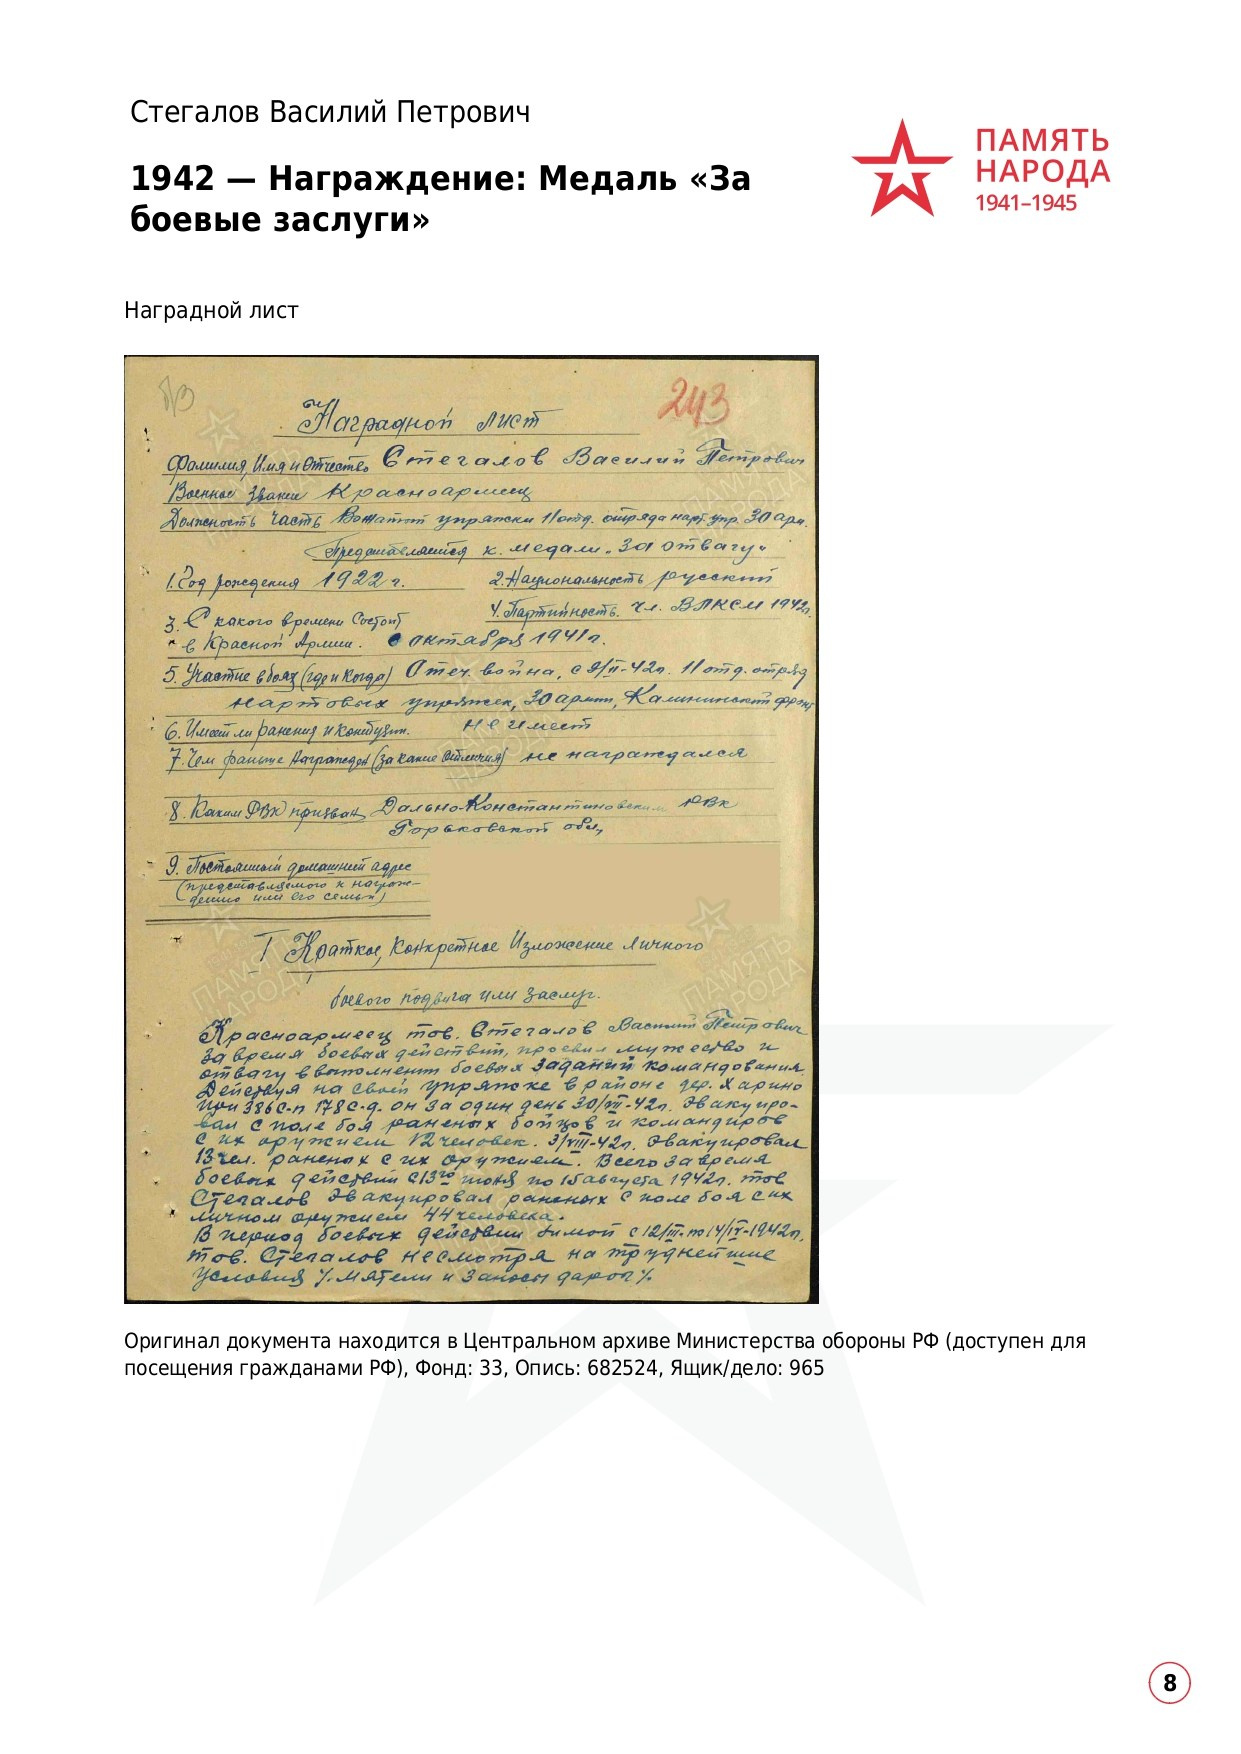 Стегалов Василий Петрович
1942 — Награждение: Медаль «За
боевые заслуги»
ПАМЯТЬ
НАРОДА
1941–1945
Наградной лист
243
Наградной лист
Фамилия, Имя и Отчество Стегалов Василий Петрович
Военное звание Красноармеец
Должность часть Вожатый упряжки 11 отд. отряда нарт. упр. 30 арм.
Представляется к медали „За отвагу"
1. Год рождения 1922 г. 2. Национальность русский
3. С какого времени Состоит 4. Партийность чл. ВЛКСМ 1942г.
в Красной Армии. с октября 1941 г.
5. Участие в боях (где и когда) Отеч. война, с 9/II-42г. 11 отд. отряд
нартовых упряжек, 30 армии, Калининский фронт
6. Имеет ли ранения и контузии. не имеет
7. Чем раньше награжден (за какие отличия) не награждался
8. Каким РВК призван Дально-Константиновским РВК
Горьковской обл,
9. Постоянный домашний адрес
(представляемого к награж-
дению или его семьи)
I Краткое, Конкретное Изложение личного
боевого подвига или заслуг.
Красноармеец тов. Стегалов Василий Петрович
за время боевых действий, проявил мужество и
отвагу в выполнении боевых заданий командования.
Действуя на своей упряжке в районе дер. Харино
при 386 с-п 178 с-д. он за один день 30/VII-42г. эвакуиро-
вал с поле боя раненых бойцов и командиров
с их оружием 12 человек. 3/VIII-42г. эвакуировал
13 чел. раненых с их оружием. Всего за время
боевых действий с 13го июня по 15 августа 1942г. тов
Стегалов эвакуировал раненых с поле боя с их
личном оружием 44 человека.
В период боевых действий зимой с 12/III-по 14/IV-1942г.
тов. Стегалов несмотря на труднейшие
условия /. мятели и заносы дорог /.
Оригинал документа находится в Центральном архиве Министерства обороны РФ (доступен для
посещения гражданами РФ), Фонд: 33, Опись: 682524, Ящик/дело: 965
8